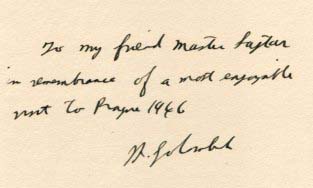 To my friend Master Sajtar
in remembrance of a most enjoyable
visit to Prague 1946
H. Golombek